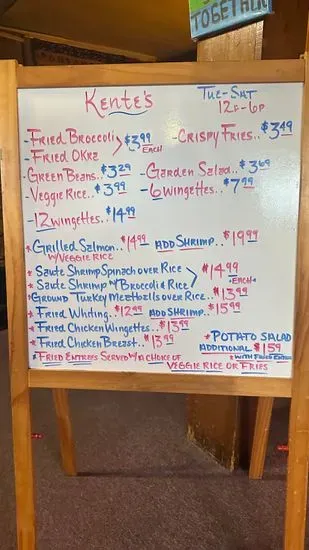 TOGETHER
Kente's
Tue-Sat
12P-6P
-Fried Broccoli
-Fried Okra
$3.99
Each
-Crispy Fries..$3.49
-Green Beans..$3.29
-Garden Salad..$3.69
-Veggie Rice..$3.99
-6 Wingettes..$7.99
-12 Wingettes..$14.99
*Grilled Salmon..$14.99 ADD Shrimp..$19.99
w/Veggie Rice
*Saute Shrimp Spinach over Rice
*Saute Shrimp w/Broccoli & Rice
$14.99
-Each-
*Ground Turkey Meatballs over Rice..$13.99
*Fried Whiting..$12.99 ADD Shrimp..$15.99
*Fried Chicken Wingettes..$13.99
*Fried Chicken Breast..$13.99
*Potato Salad
Additional $1.59
*with Fried Entree
*Fried Entrees Served w/a choice of
Veggie Rice or Fries